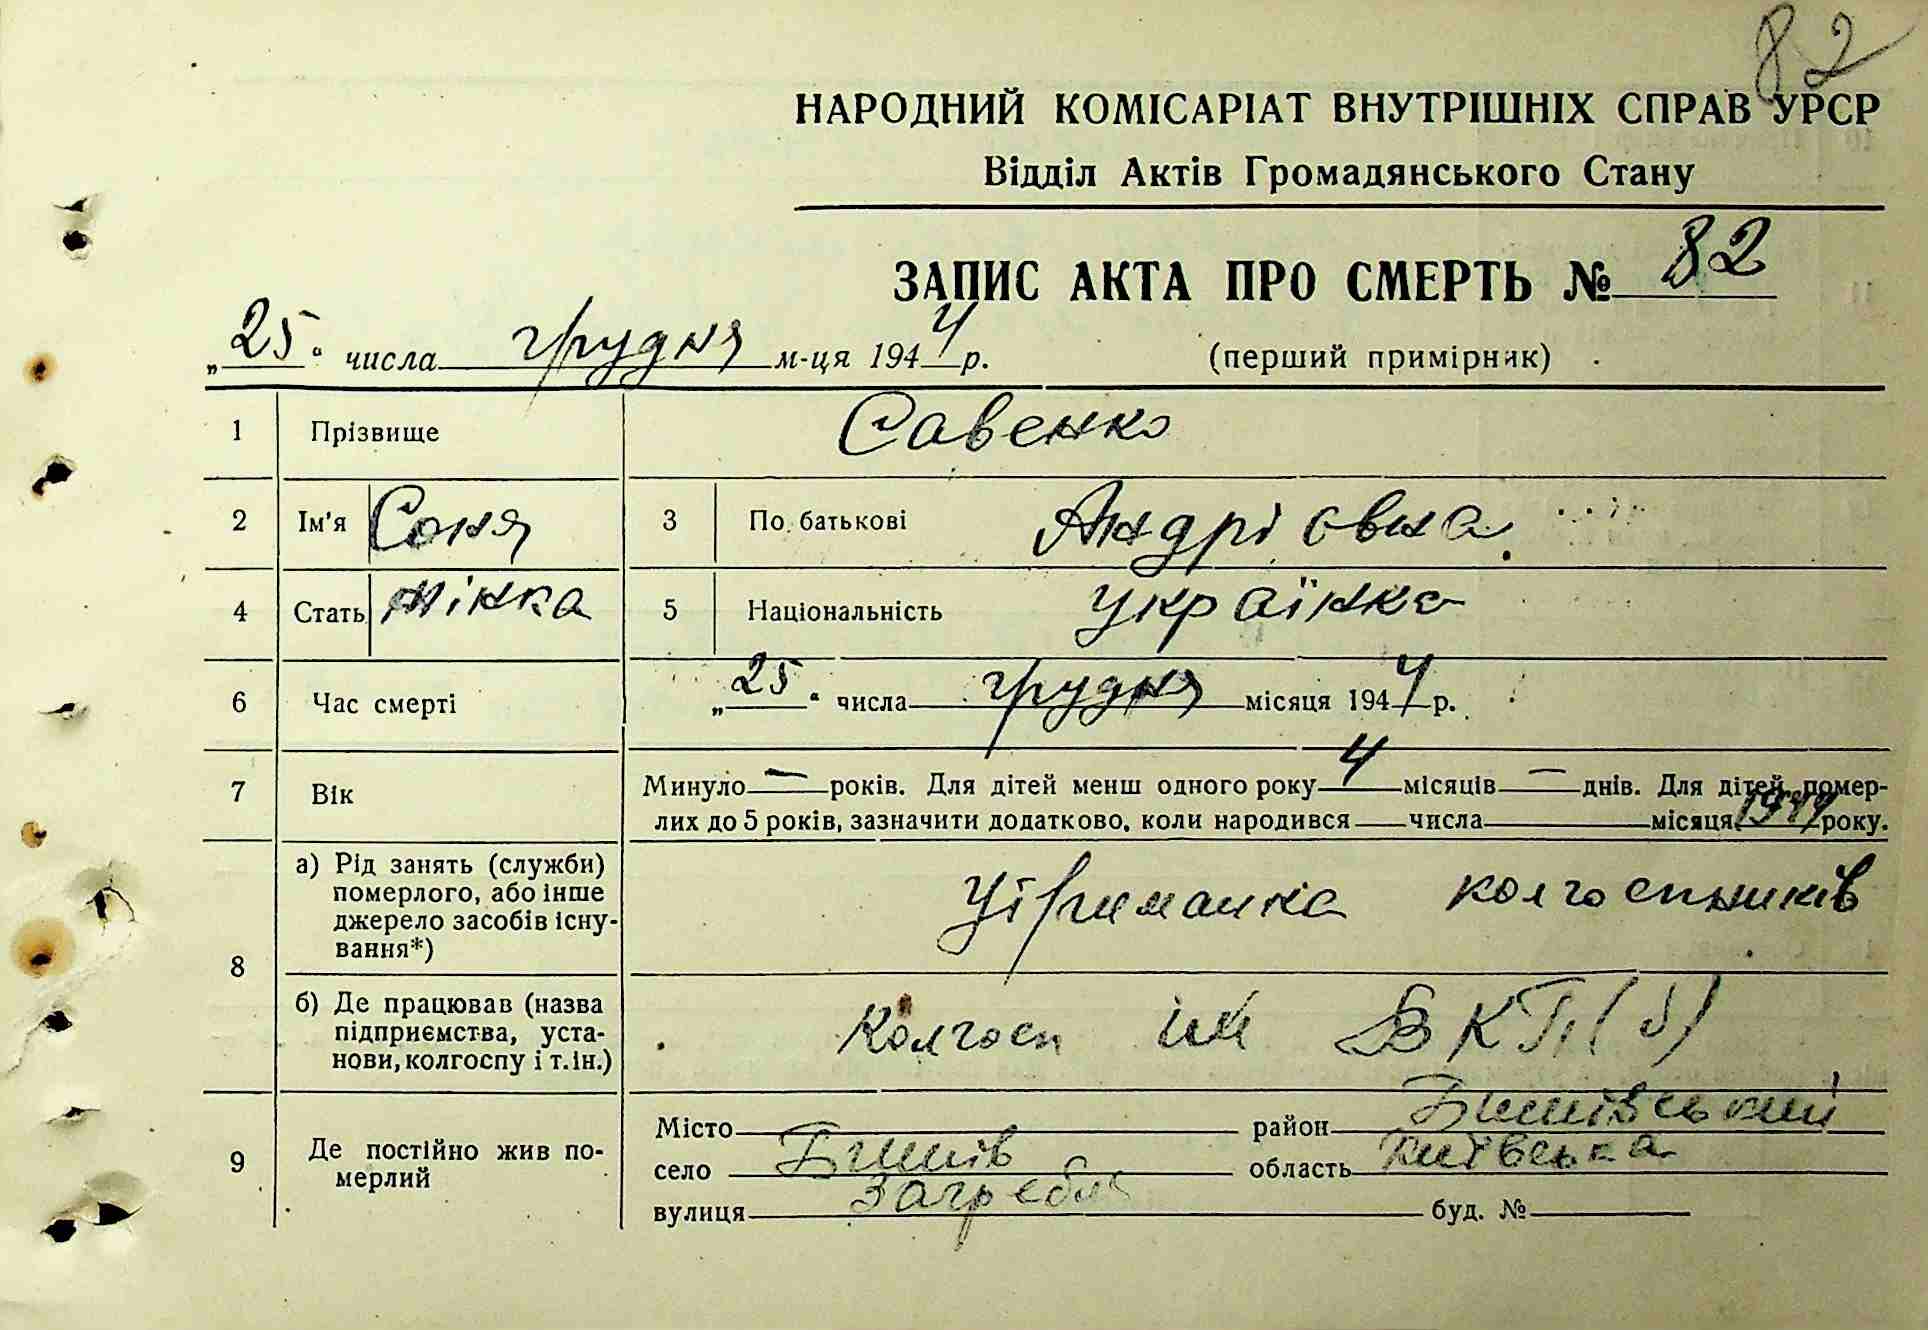 82
НАРОДНИЙ КОМІСАРІАТ ВНУТРІШНІХ СПРАВ УРСР
Відділ Актів Громадянського Стану
ЗАПИС АКТА ПРО СМЕРТЬ № 82
„25" числа грудня м-ця 1944 р. (перший примірник)
1 Прізвище Савенко
2 Ім'я Соня 3 По батькові Андрієвна
4 Стать жінка 5 Національність українка
6 Час смерті „25" числа грудня місяця 1944 р.
7 Вік Минуло — років. Для дітей менш одного року 4 місяців — днів. Для дітей, помер-
лих до 5 років, зазначити додатково, коли народився числа місяця 1944 року.
8 а) Рід занять (служби)
померлого, або інше
джерело засобів існу-
вання*)
Утриманка колгоспників
б) Де працював (назва
підприємства, уста-
нови, колгоспу і т.ін.)
Колгосп ім ВКП(б)
9 Де постійно жив по-
мерлий
Місто район Бишівський
село Бишів область Київська
вулиця буд. №